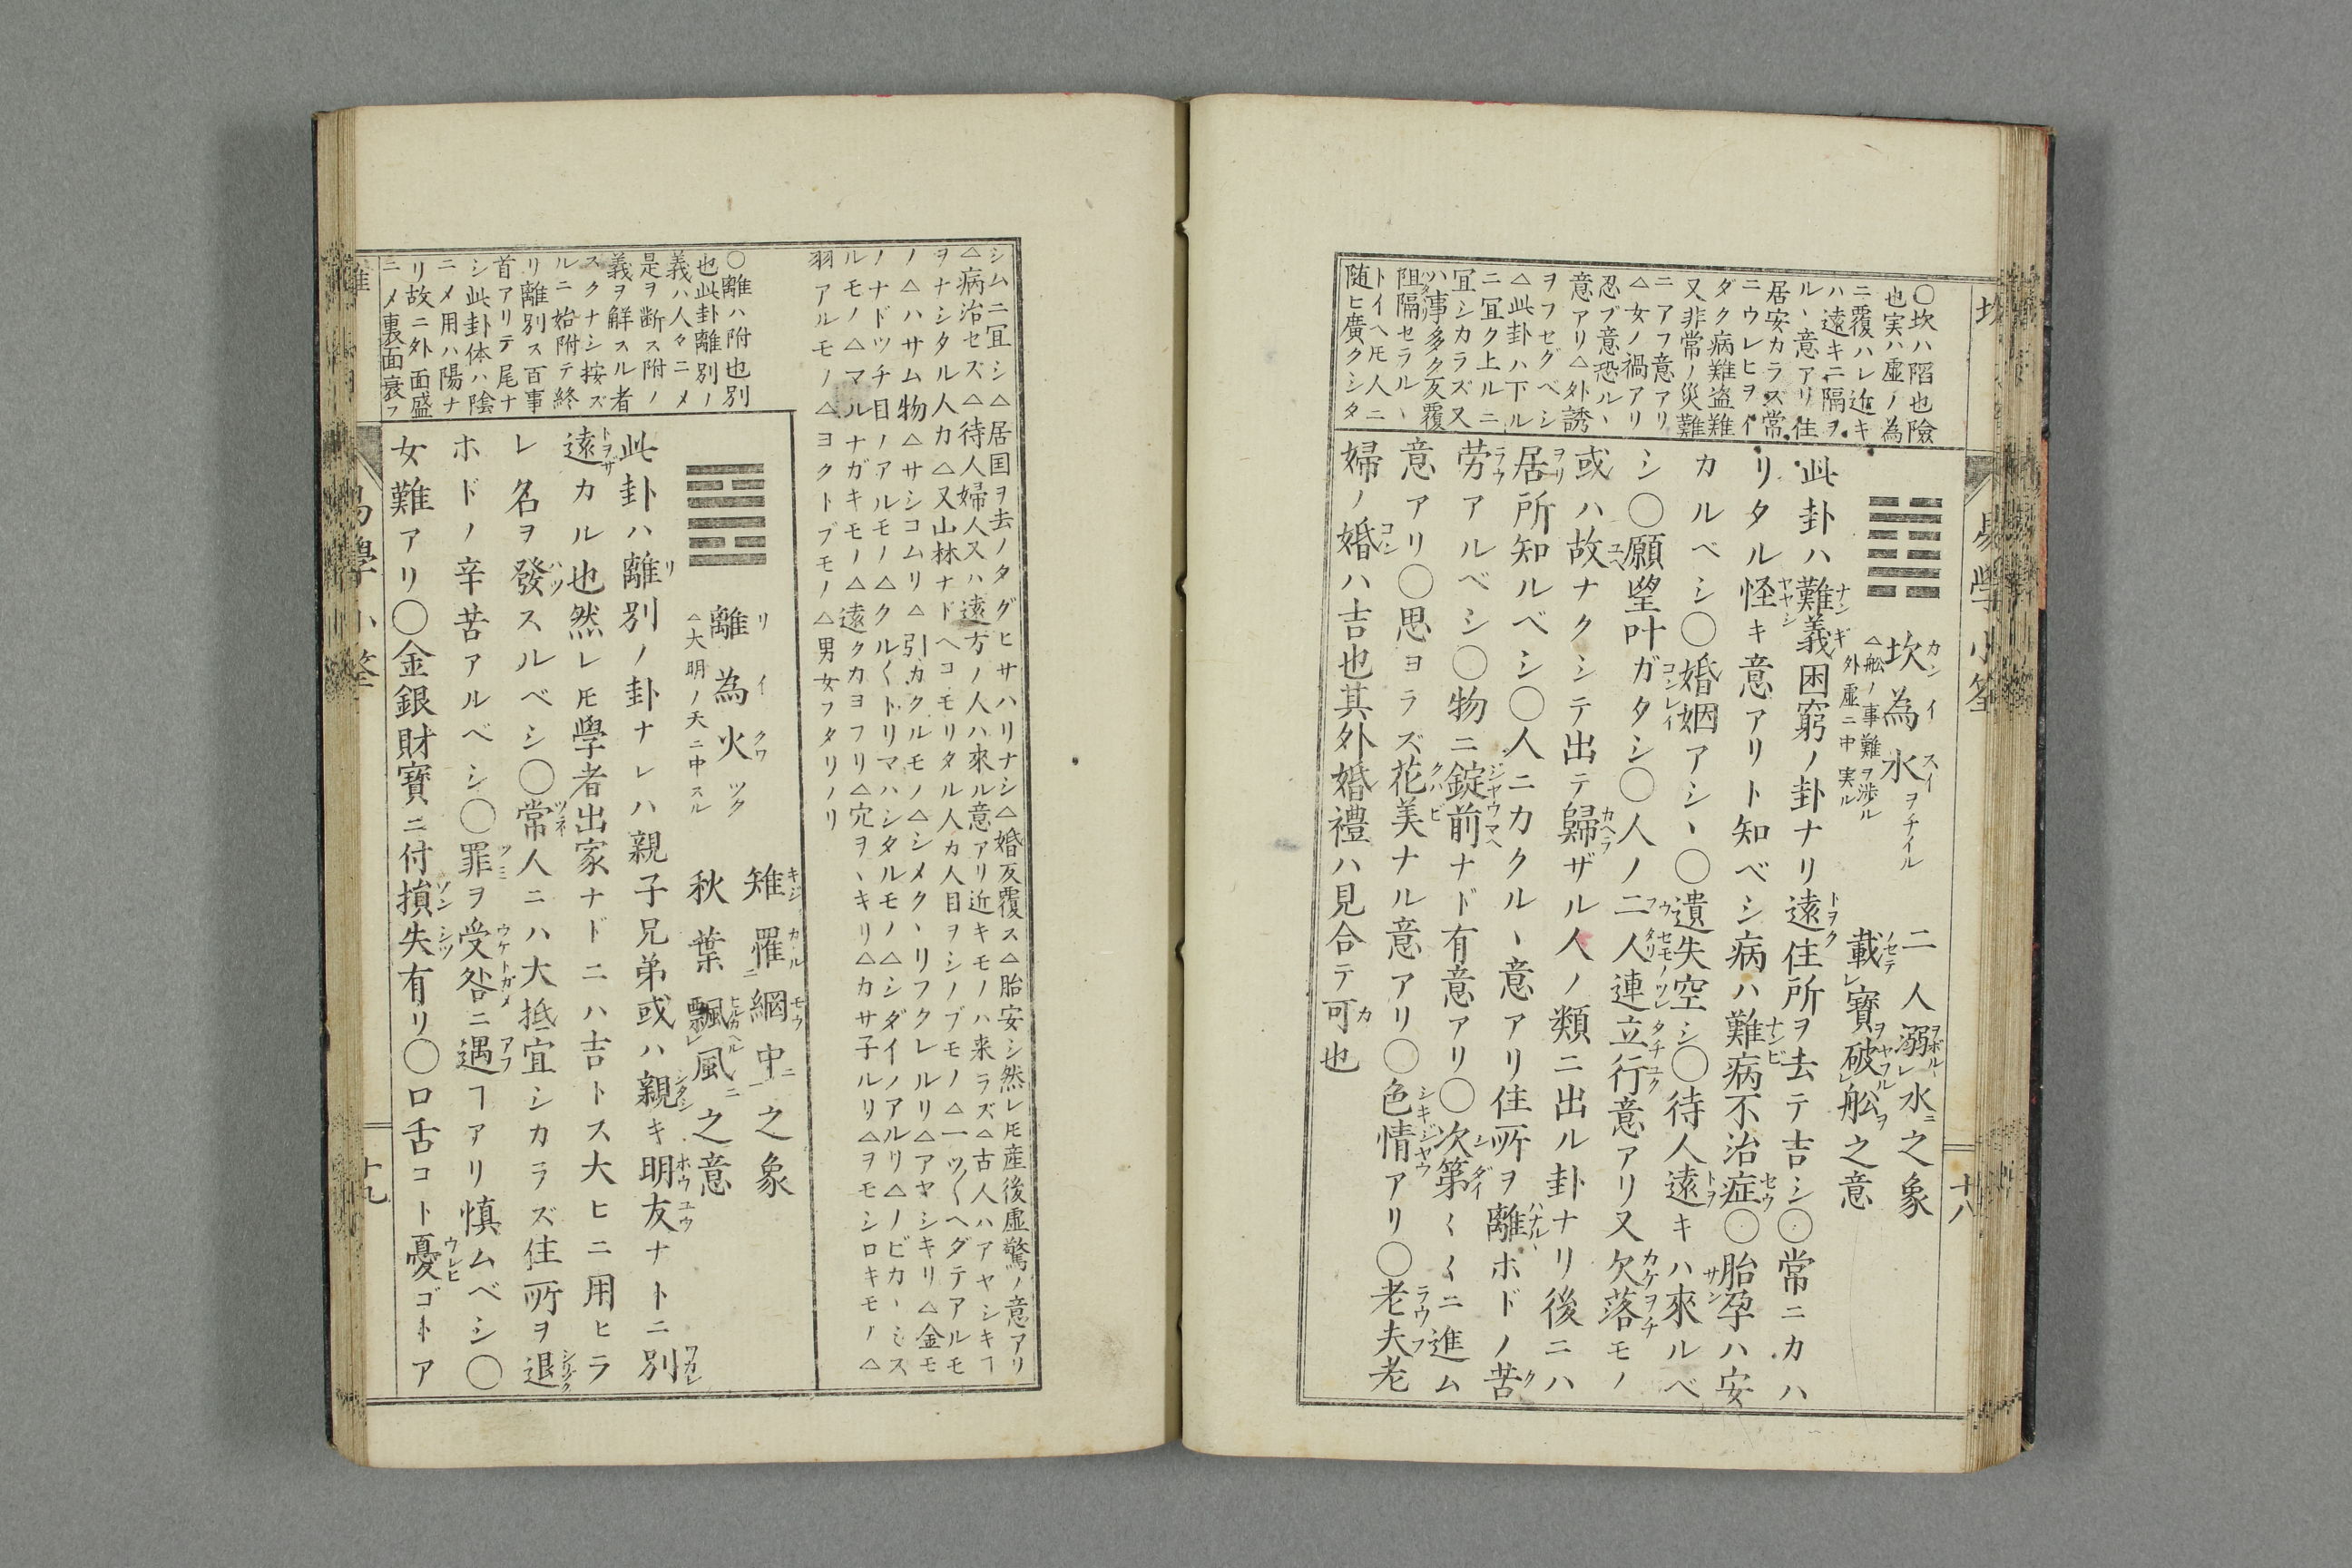 坎
易學小筌
十八
○坎ハ陷也險
也実ハ虚ノ為
ニ覆ハレ近キ
ハ遠キニ隔ヲ
ルヽ意アリ住
居安カラズ常
ニウレヒヲイ
ダク病難盗難
又非常ノ災難
ニアフ意アリ
△女ノ禍アリ
忍ブ意恐ルヽ
意アリ△外誘
ヲフセグベシ
△此卦ハ下ル
ニ冝ク上ルニ
冝シカラズ又
ハ事多ク反覆
阻隔セラルヽ
トイヘ𪜈人ニ
随ヒ廣クシタ
坎為水
カンイスイヲチイル
△舩ノ事難ヲ渉ル
外虚ニ中実ル
二人溺レ水ニ之象
載レ寶ヲ破レ舩ヲ之意
此卦ハ難義困窮ノ卦ナリ遠住所ヲ去テ吉シ○常ニカハ
リタル怪キ意アリト知ベシ病ハ難病不治症○胎孕ハ安
カルベシ○婚姻アシヽ○遺失空シ○待人遠キハ來ルベ
シ○願望叶ガタシ○人ノ二人連立行意アリ又欠落モノ
或ハ故ナクシテ出テ歸ザル人ノ類ニ出ル卦ナリ後ニハ
居所知ルベシ○人ニカクルヽ意アリ住所ヲ離ホドノ苦
労アルベシ○物ニ錠前ナド有意アリ○次第〱〱ニ進ム
意アリ○思ヨラズ花美ナル意アリ○色情アリ○老夫老
婦ノ婚ハ吉也其外婚禮ハ見合テ可也
シムニ冝シ△居国ヲ去ノタグヒサハリナシ△婚反覆ス△胎安シ然レ𪜈産後虚驚ノ意アリ
△病治セズ△待人婦人又ハ遠方ノ人ハ來ル意アリ近キモノハ来ラズ△古人ハアヤシキヿ
ヲナシタル人カ△又山林ナドヘコモリタル人カ人目ヲシノブモノ△一ツ〱ヘダテアルモ
ノ△ハサム物△サシコムリ△引カクルモノ△シメクヽリフクレルリ△アヤシキリ△金モ
ノナドツチ目ノアルモノ△クル〱トリマハシタルモノ△シダイノアルリ△ノビカヽミス
ルモノ△マルナガキモノ△遠クカヨフリ△穴ヲヽキリ△カサ子ルリ△ヲモシロキモノ△
羽アルモノ△ヨクトブモノ△男女フタリノリ
○離ハ附也別
也此卦離別ノ
義ハ人々ニメ
是ヲ断ス附ノ
義ヲ解スル者
スクナシ按ズ
ルニ始附テ終
リ離別ス百事
首アリテ尾ナ
シ此卦体ハ陰
ニメ用ハ陽ナ
リ故ニ外面盛
ニメ裏面衰フ
離為火
リイクワツク
△大明ノ天ニ中スル
雉罹ニ網中一之象
秋葉飄レ風ニ之意
此卦ハ離別ノ卦ナレハ親子兄弟或ハ親キ明友ナトニ別
遠カル也然レ𪜈學者出家ナドニハ吉トス大ヒニ用ヒラ
レ名ヲ發スルベシ○常人ニハ大抵宜シカラズ住所ヲ退
ホドノ辛苦アルベシ○罪ヲ受咎ニ遇ヿアリ慎ムベシ○
女難アリ○金銀財寶ニ付損失有リ○口舌コト憂ゴトア
離
易學小筌
十九